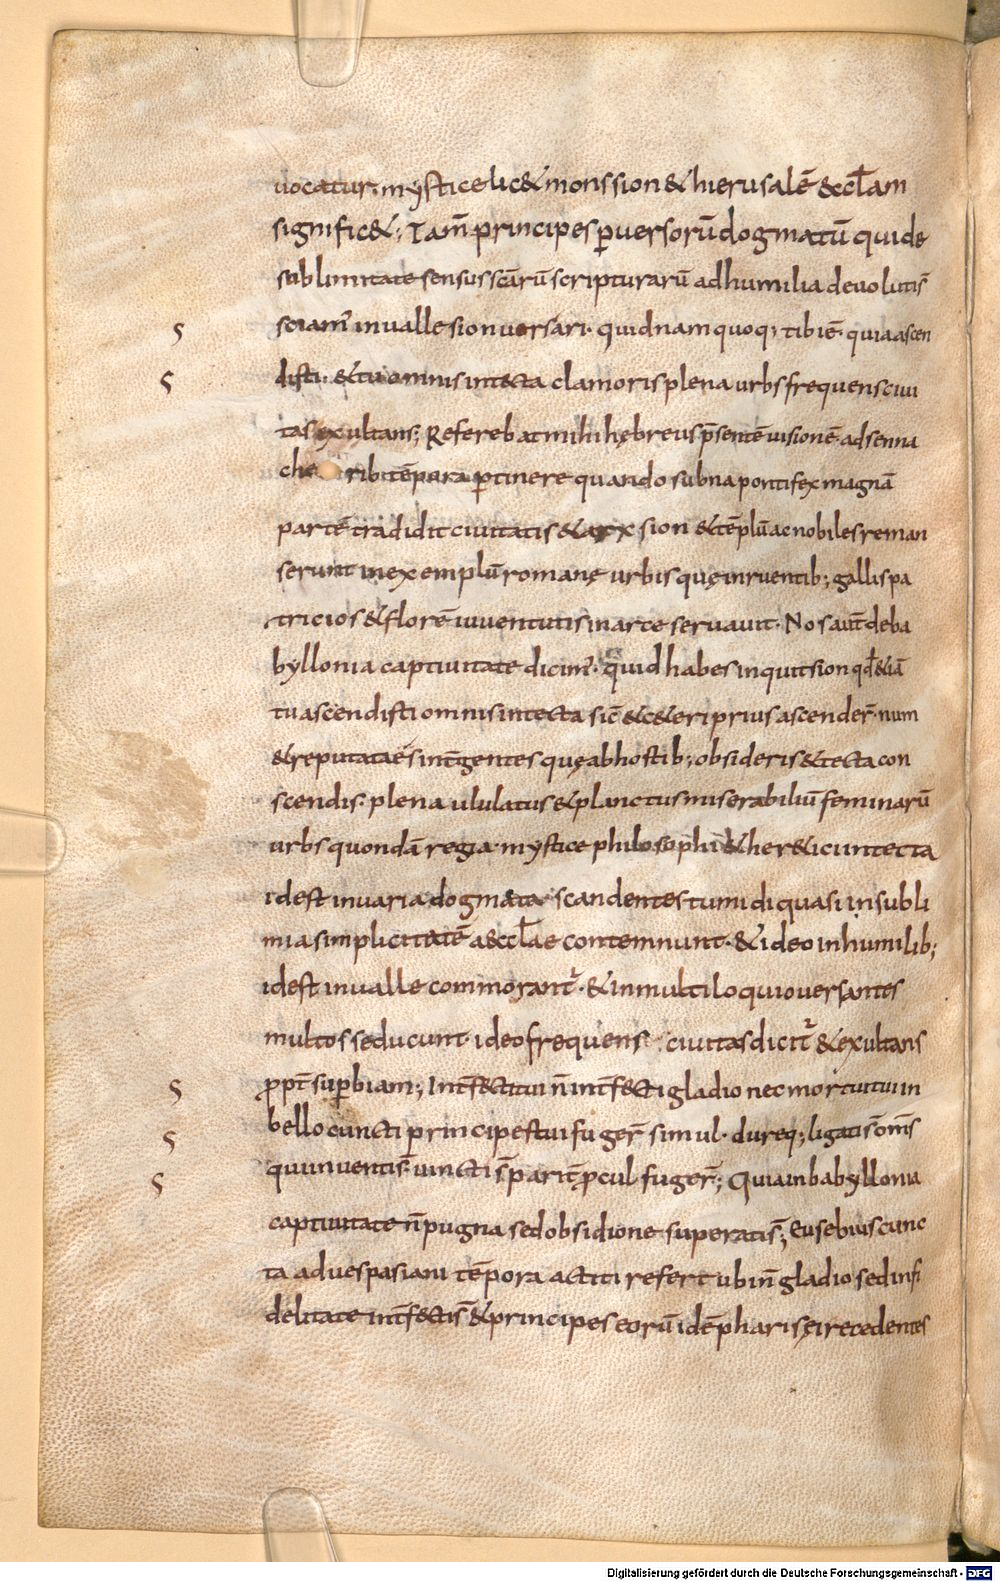 uocatur; mystice lic& mons sion & hierusalē & eccl̄am
signific&; Tam̄ principes ꝑuersorū dogmatū qui de
sublimitate sensus sc̄arū scripturarū ad humilia deuoluti s̄
sciam' in ualle sion uersari· quid nam quoq; tibi ē· quia ascen
disti· & tu omnis in tecta clamoris plena urbs frequens ciui
tas exultans; Referebat mihi hębreus p̄sentē uisionē· ad senna
che ribi tēpora ꝑtinere quando subna pontifex magnā
partē tradidit ciuitatis & arx sion & tēplū ac nobiles reman
serunt in exemplū romanę urbis quę inruentib; gallis pa
tricios & florē iuuentutis in arce seruauit· Nos aut̄ de ba
byllonia captiuitate dicim'· quid habes inquit sion qd̄ & iā
tu ascendisti omnis in tecta sic̄ & c&eri prius ascender̄· num
& reputata es int̄ gentes quę ab hostib; obsideris & tecta con
scendis· plena ululatus & planctus miserabiliū feminarū
urbs quondā regia· mystice philosophi & her&ici in tecta
id est in uaria dogmata scandentes tumidi quasi in subli
mia simplicitatē aeccl̄ae contemnunt· & ideo in humilib;
id est in ualle commorant᷑· & in multiloquio uersantes
multos seducunt· ideo frequens ciuitas dicit᷑ & exultans
ꝓpt̄ suꝑbiam; Int̄fecti tui n̄ int̄f&ti gladio nec mortui tui in
bello cuncti principes tui fuger̄ simul· dureq; ligati s̄ om̄s
qui inuenti s̄ uincti s̄ parit̄ ꝓcul fuger̄; Quia in babyllonia
captiuitate n̄ pugna sed obsidione superati s̄; Eusebius cunc
ta ad uespasiani tēpora actiti refert ubi n̄ gladio sed infi
delitate int̄f&ti s̄ & principes eorū idē pharisęi recedentes
Digitalisierung gefördert durch die Deutsche Forschungsgemeinschaft - DFG